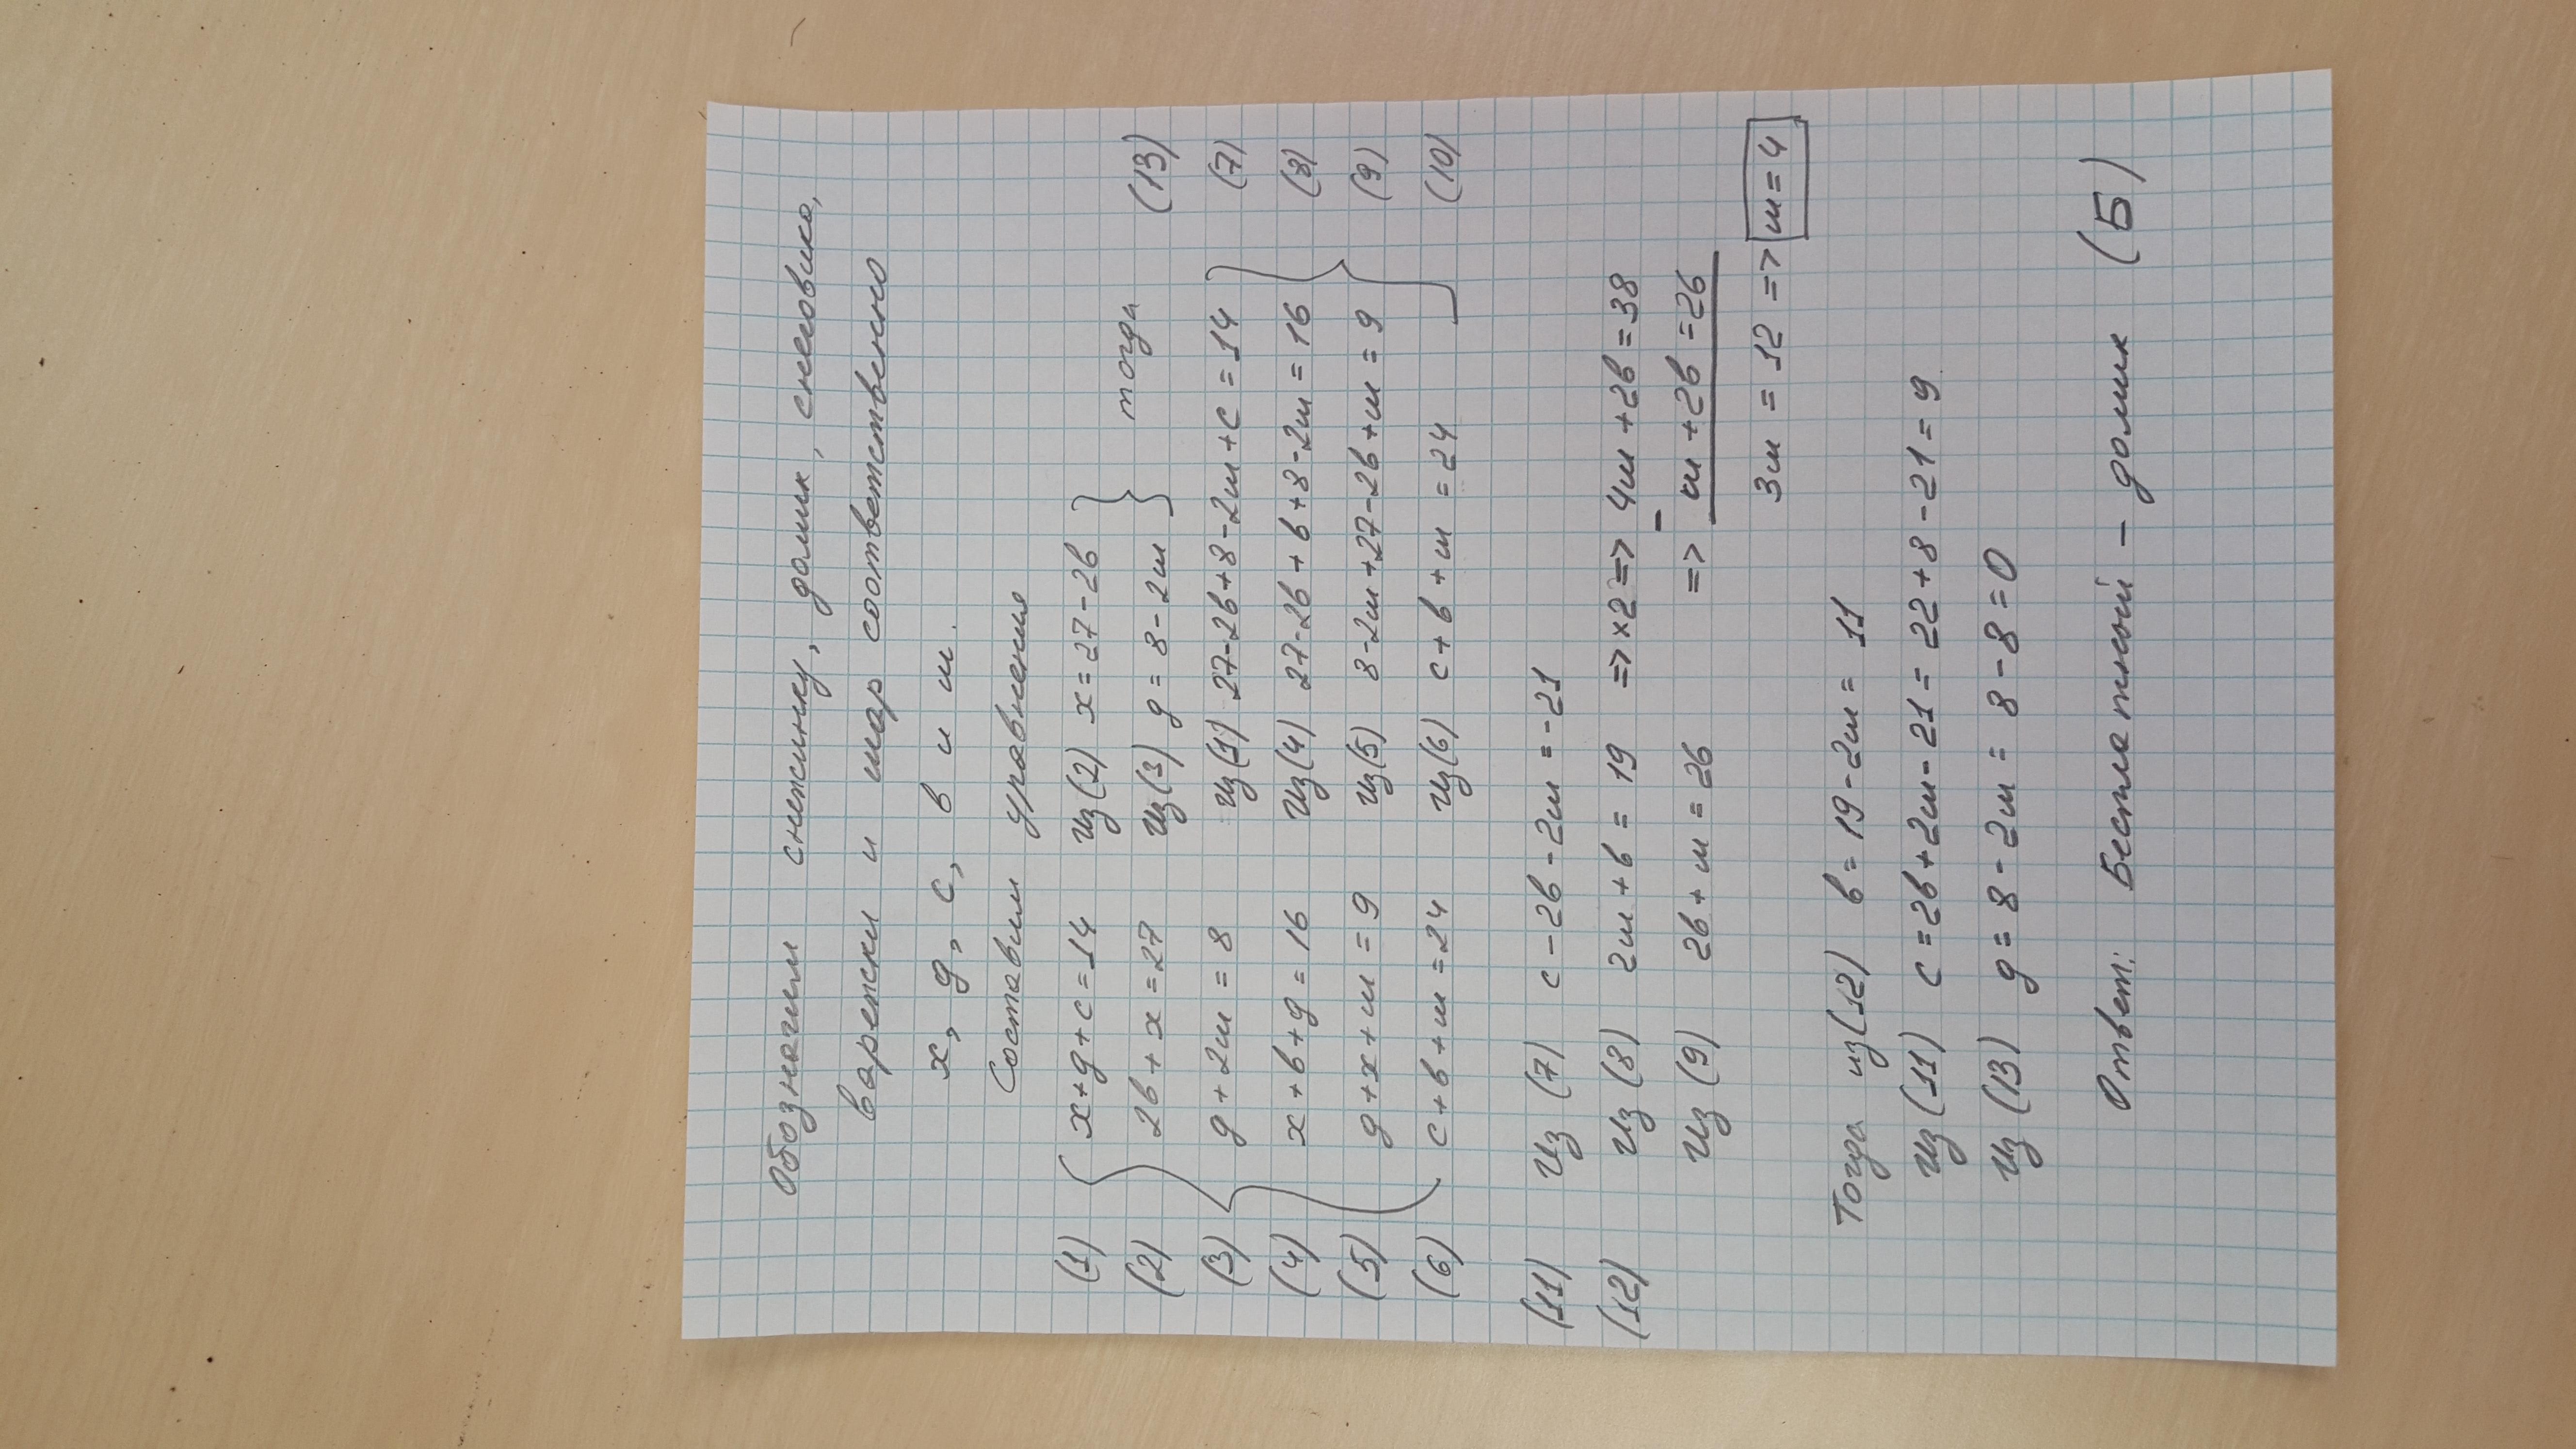 Обозначим снежинку, домик, снеговика,
варежки и шар соответственно
x, g, c, в и ш.
Составим уравнения
(1) x+g+c=14 из(2) x=27-2в
(2) 2в+x=27 из(3) g=8-2ш } тогда (13)
(3) g+2ш=8 из(1) 27-2в+8-2ш+c=14 (7)
(4) x+в+g=16 из(4) 27-2в+в+8-2ш=16 (8)
(5) g+x+ш=9 из(5) 8-2ш+27-2в+ш=9 (9)
(6) c+в+ш=24 из(6) c+в+ш=24 (10)
(11) Из (7) c-2в-2ш=-21
(12) Из (8) 2ш+в=19 =>×2=> 4ш+2в=38
Из (9) 2в+ш=26 => ш+2в=26
3ш=12 => ш=4
Тогда из(12) в=19-2ш=11
Из(11) c=2в+2ш-21=22+8-21=9
Из(13) g=8-2ш=8-8=0
Ответ: Бесплатной - домик (Б)